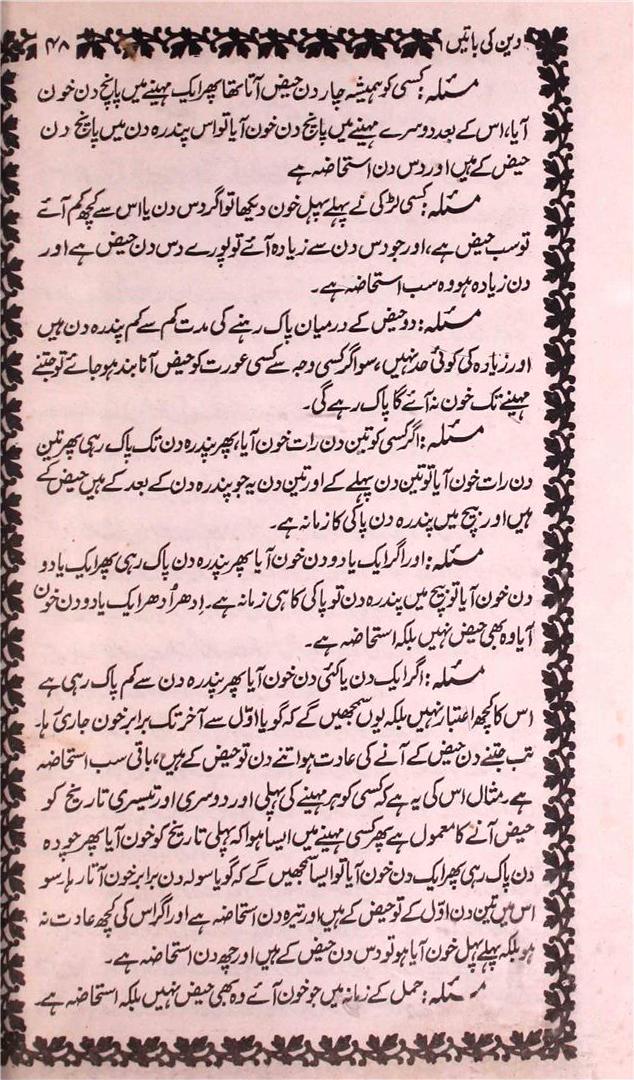 دین کی باتیں ۴۸
مسئلہ: کسی کو ہمیشہ چار دن حیض آتا تھا پھر ایک مہینے میں پانچ دن خون
آیا، اس کے بعد دوسرے مہینے میں پانچ دن خون آیا تو اس پندرہ دن میں پانچ دن
حیض کے ہیں اور دس دن استحاضہ ہے
مسئلہ: کسی لڑکی نے پہلے پہل خون دیکھا تو اگر دس دن یا اس سے کچھ کم آئے
تو سب حیض ہے، اور جو دس دن سے زیادہ آئے تو پورے دس دن حیض ہے اور
دن زیادہ ہو وہ سب استحاضہ ہے۔
مسئلہ: دو حیض کے درمیان پاک رہنے کی مدت کم سے کم پندرہ دن ہیں
اور زیادہ کی کوئی حد نہیں، سو اگر کسی وجہ سے کسی عورت کو حیض آنا بند ہو جائے تو جتنے
مہینے تک خون نہ آئے گا پاک رہے گی۔
مسئلہ: اگر کسی کو تین دن رات خون آیا، پھر پندرہ دن تک پاک رہی پھر تین
دن رات خون آیا تو تین دن پہلے کے اور تین دن یہ جو پندرہ دن کے بعد کے ہیں حیض کے
ہیں اور بیچ میں پندرہ دن پاکی کا زمانہ ہے۔
مسئلہ: اور اگر ایک یا دو دن خون آیا پھر پندرہ دن پاک رہی پھر ایک یا دو
دن خون آیا تو بیچ میں پندرہ دن تو پاکی کا ہی زمانہ ہے۔ اِدھر اُدھر ایک یا دو دن خون
آیا وہ بھی حیض نہیں بلکہ استحاضہ ہے۔
مسئلہ: اگر ایک دن یا کئی دن خون آیا پھر پندرہ دن سے کم پاک رہی ہے
اس کا کچھ اعتبار نہیں بلکہ یوں سمجھیں گے کہ گویا اوّل سے آخر تک برابر خون جاری رہا۔
تب جتنے دن حیض کے آنے کی عادت ہو اتنے دن تو حیض کے ہیں، باقی سب استحاضہ
ہے۔ مثال اس کی یہ ہے کہ کسی کو ہر مہینے کی پہلی اور دوسری اور تیسری تاریخ کو
حیض آنے کا معمول ہے پھر کسی مہینے میں ایسا ہوا کہ پہلی تاریخ کو خون آیا پھر چودہ
دن پاک رہی پھر ایک دن خون آیا تو ایسا سمجھیں گے کہ گویا سولہ دن برابر خون آتا رہا، سو
اس میں تین دن اوّل کے تو حیض کے ہیں اور تیرہ دن استحاضہ ہے اور اگر اس کی کچھ عادت نہ
ہو بلکہ پہلے پہل خون آیا ہو تو دس دن حیض کے ہیں اور چھ دن استحاضہ ہے۔
مسئلہ: حمل کے زمانہ میں جو خون آئے وہ بھی حیض نہیں بلکہ استحاضہ ہے